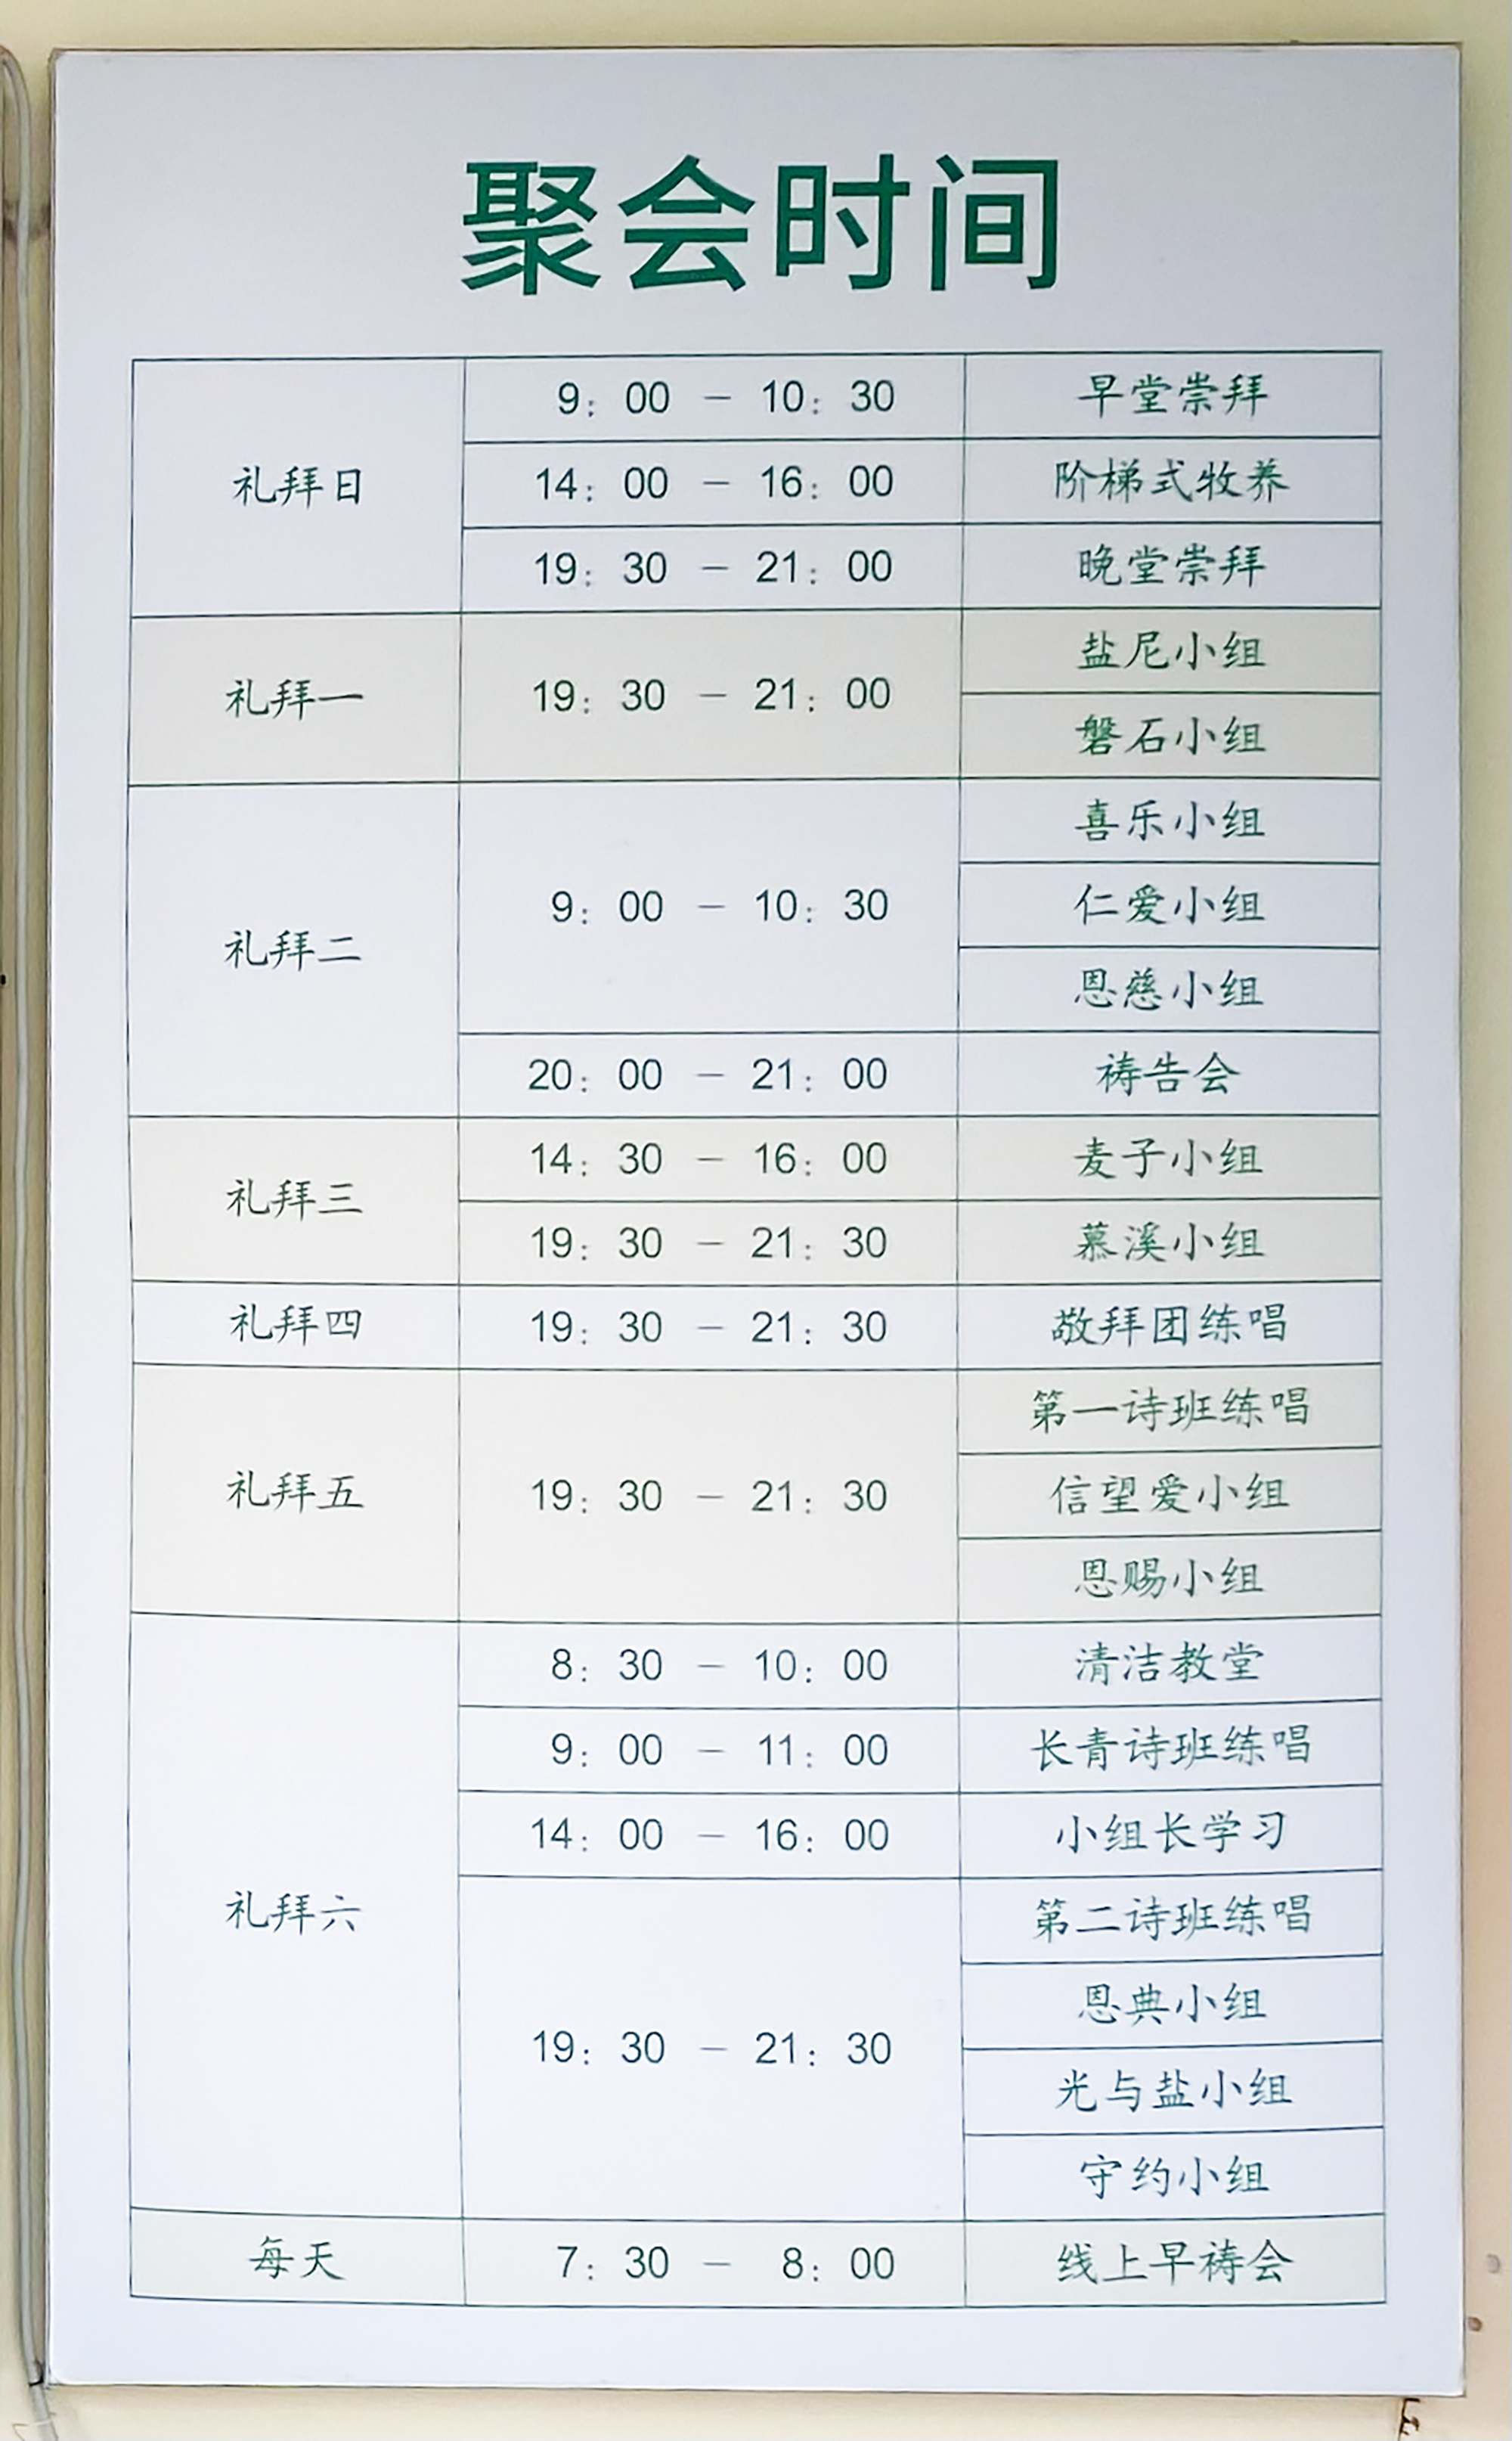 聚会时间
礼拜日
9：00 — 10：30 早堂崇拜
14：00 — 16：00 阶梯式牧养
19：30 — 21：00 晚堂崇拜
礼拜一
19：30 — 21：00
盐尼小组
磐石小组
礼拜二
9：00 — 10：30
喜乐小组
仁爱小组
恩慈小组
20：00 — 21：00 祷告会
礼拜三
14：30 — 16：00 麦子小组
19：30 — 21：30 慕溪小组
礼拜四 19：30 — 21：30 敬拜团练唱
礼拜五
19：30 — 21：30
第一诗班练唱
信望爱小组
恩赐小组
礼拜六
8：30 — 10：00 清洁教堂
9：00 — 11：00 长青诗班练唱
14：00 — 16：00 小组长学习
19：30 — 21：30
第二诗班练唱
恩典小组
光与盐小组
守约小组
每天 7：30 — 8：00 线上早祷会